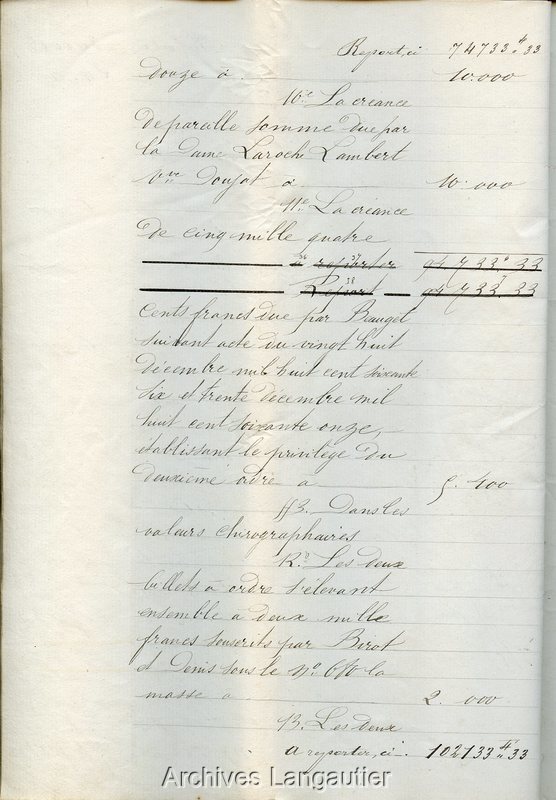 Report, ci 74733 " 33
douze à 10.000
10° La créance
de pareille somme due par
la Dame Laroche Lambert
Vve Doujat à 10.000
11° La créance
de cinq mille quatre
à reporter 94733 " 33
Report 94733 " 33
cents francs due par Beuget
suivant acte du vingt huit
décembre mil huit cent soixante
dix et trente décembre mil
huit cent soixante onze,
établissant le privilège du
deuxième ordre à 5.400
§3. Dans les
valeurs chirographaires
12° Les deux
billets à ordre s'élevant
ensemble à deux mille
francs souscrits par Birot
et Denis sous le n° la
masse à 2.000
13. Les deux
à reporter, ci. 102133 " 33
Archives Langautier